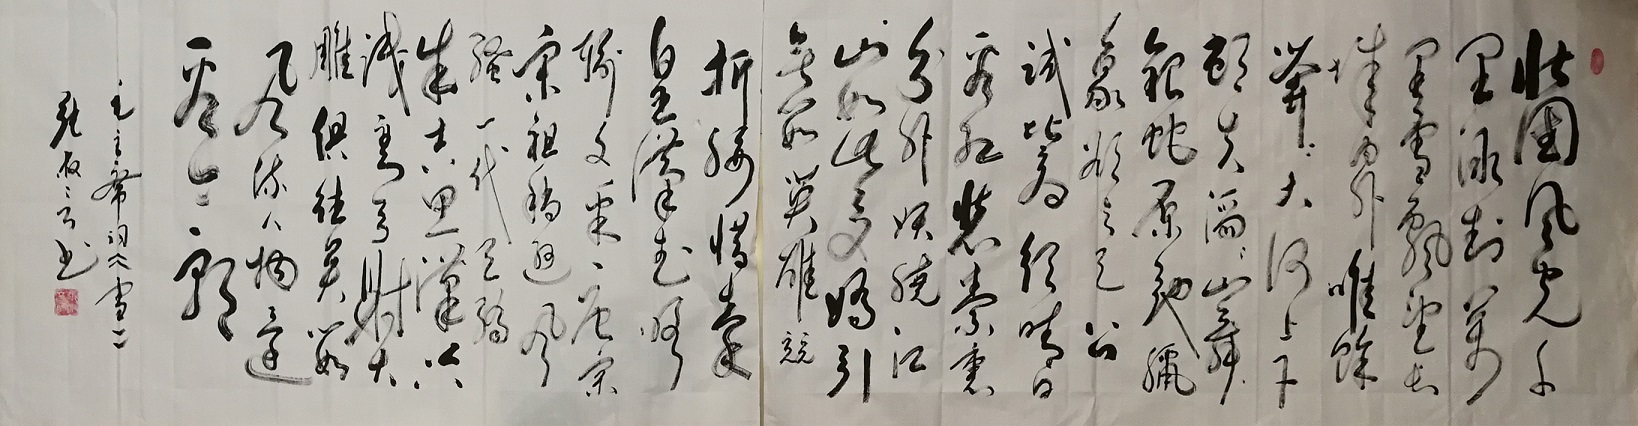 北国风光千
里冰封万
里雪飘望长
城内外唯馀
莽々大河上下
顿失滔々山舞
银蛇原驰腊
象欲与天公
试比高须晴日
看红装素裹
分外妖娆江
山如此多娇引
无数英雄竞
折腰惜秦
皇汉武略
输文采唐宗
宋祖稍逊风
骚一代天骄
成吉思汗只
识弯弓射大
雕俱往矣数
风流人物还
看今朝
毛主席词雪
书